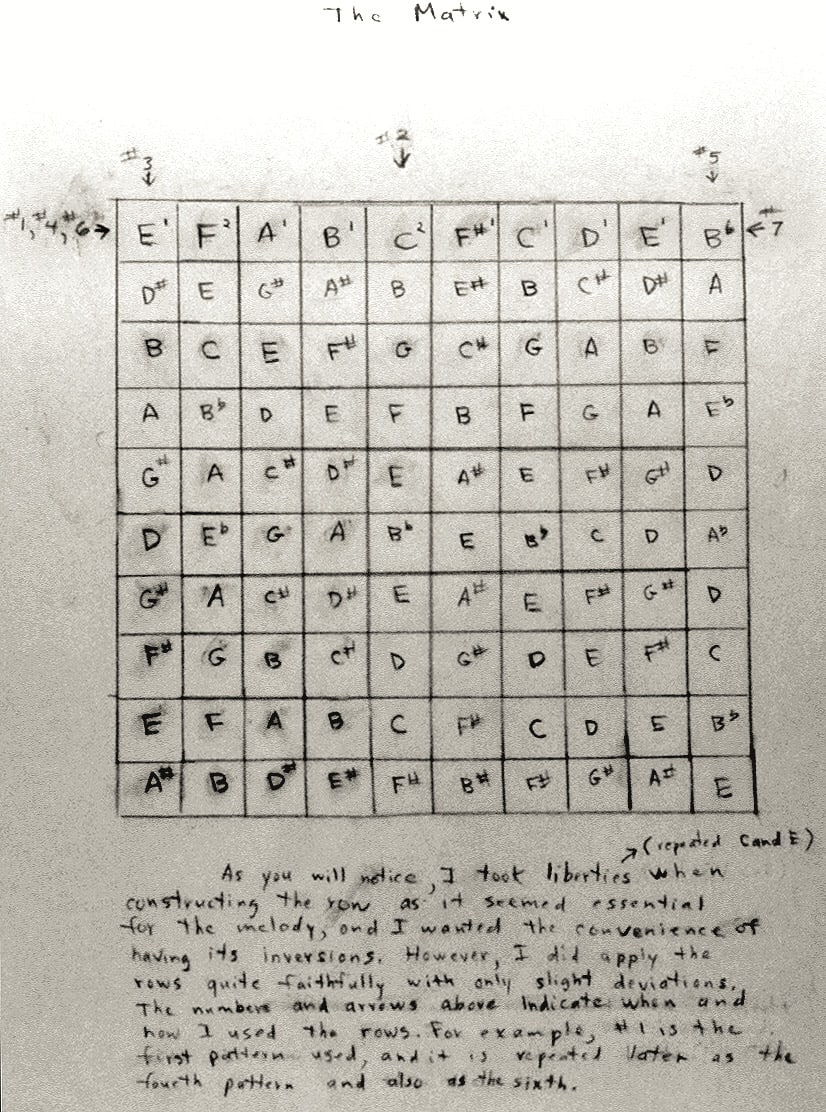 The Matrix
#3 #2 #5
#1, #4, #6 → E¹ F² A¹ B¹ C² F#¹ C¹ D¹ E¹ B♭ ← #7
D# E G# A# B E# B C# D# A
B C E F# G C# G A B F
A B♭ D E F B F G A E♭
G# A C# D# E A# E F# G# D
D E♭ G A B♭ E B♭ C D A♭
G# A C# D# E A# E F# G# D
F# G B C# D G# D E F# C
E F A B C F# C D E B♭
A# B D# E# F# B# F# G# A# E
(repeated C and E)
As you will notice, I took liberties when
constructing the row as it seemed essential
for the melody, and I wanted the convenience of
having its inversions. However, I did apply the
rows quite faithfully with only slight deviations.
The numbers and arrows above Indicate when and
how I used the rows. For example, #1 is the
first pattern used, and it is repeated later as the
fourth pattern and also as the sixth.